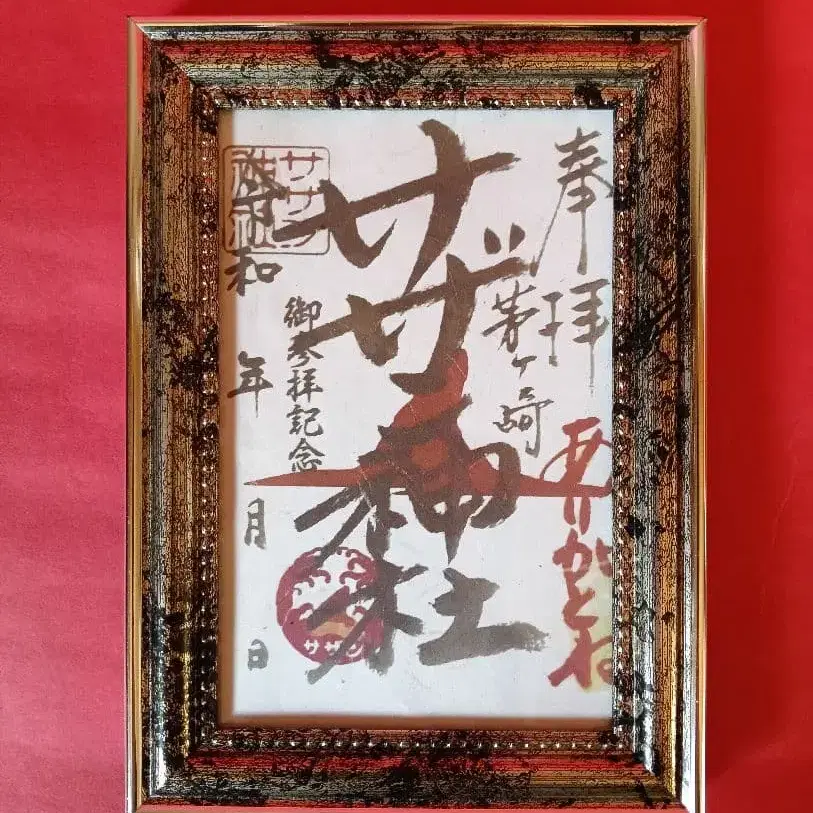 奉拝
茅ヶ崎
ありがとね
サザ神社
御参拝記念
サザン
神社
令和 年 月 日
サザン